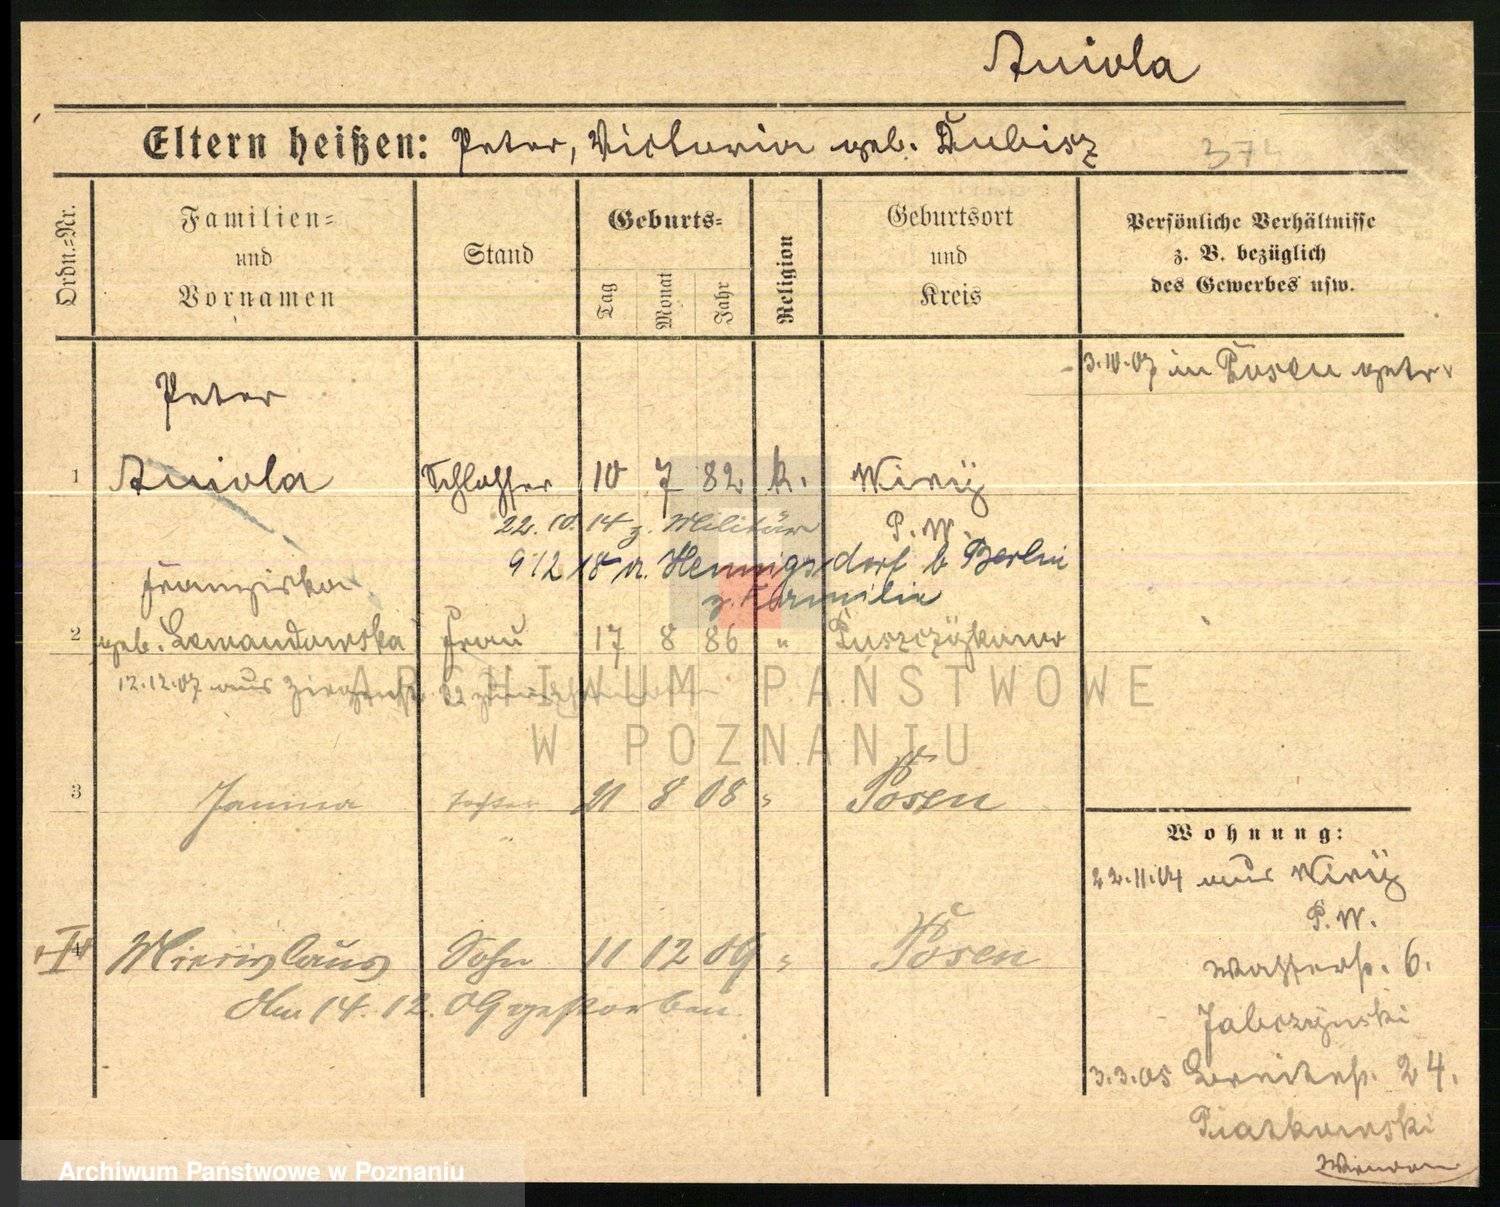 Aniola
Eltern heißen: Peter, Victoria geb. Dubisz
374
Ordn.=Nr.
Familien=
und
Vornamen
Stand
Geburts=
Tag
Monat
Jahr
Religion
Geburtsort
und
Kreis
Persönliche Verhältnisse
z. B. bezüglich
des Gewerbes usw.
3.10.07 in Posen getr.
Peter
1 Aniola Schlosser 10 7 82 k. Wiry
22. 10. 14 z. Militär P. W.
9 12 18 n. Hennigsdorf b Berlin
z. Familie
Franziska
2 geb. Lewandowska Frau 17 8 86 " Puszczykowo
12.12.07 aus
3 Janina Tochter 21 8 08 " Posen
Wohnung:
22.11.04 aus Wiry
P. W.
4 Miecislaus Sohn 11 12 09 " Posen
Am 14. 12. 09 gestorben.
Wasserstr. 6.
Jabczynski
3.3.05 Breitestr. 24.
Piatkowski
Wenden
ARCHIWUM PAŃSTWOWE
W POZNANIU
Archiwum Państwowe w Poznaniu